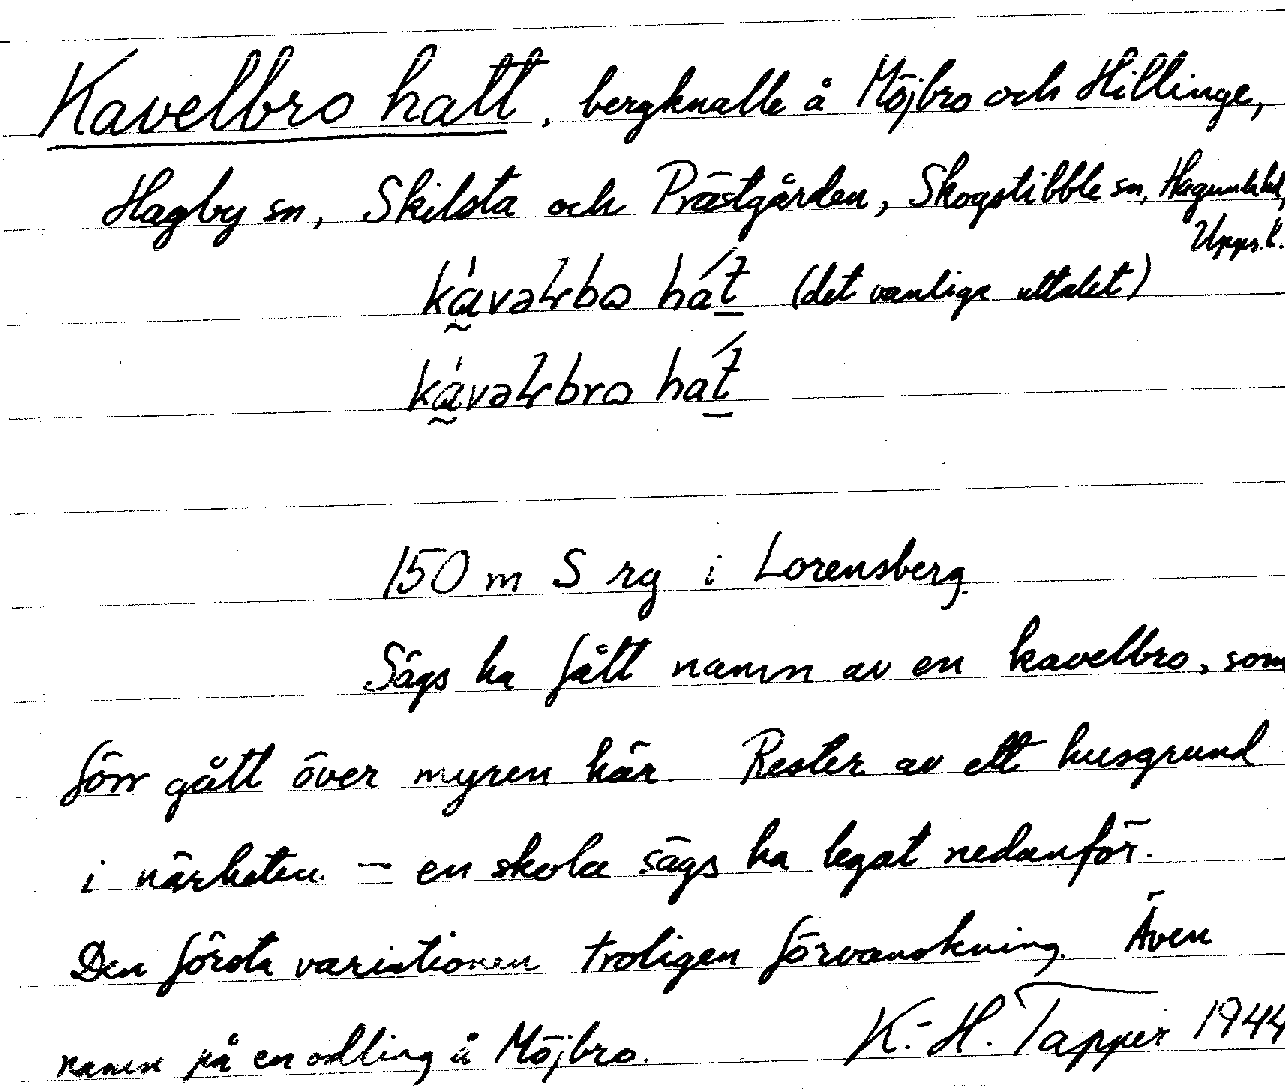 Kavelbro hatt, bergknalle å Möjbro och Hillinge,
Hagby sn, Skilsta och Prästgården, Skogstibble sn, Hagunda hd,
Upps. l.
(det vanliga uttalet)
150 m S rg i Lorensberg.
Sägs ha fått namn av en kavelbro, som
förr gått över myren här. Rester av ett husgrund
i närheten – en skola sägs ha legat nedanför.
Den första variationen troligen förvanskning. Även
namn på en odling å Möjbro. K.-H. Tapper 1944